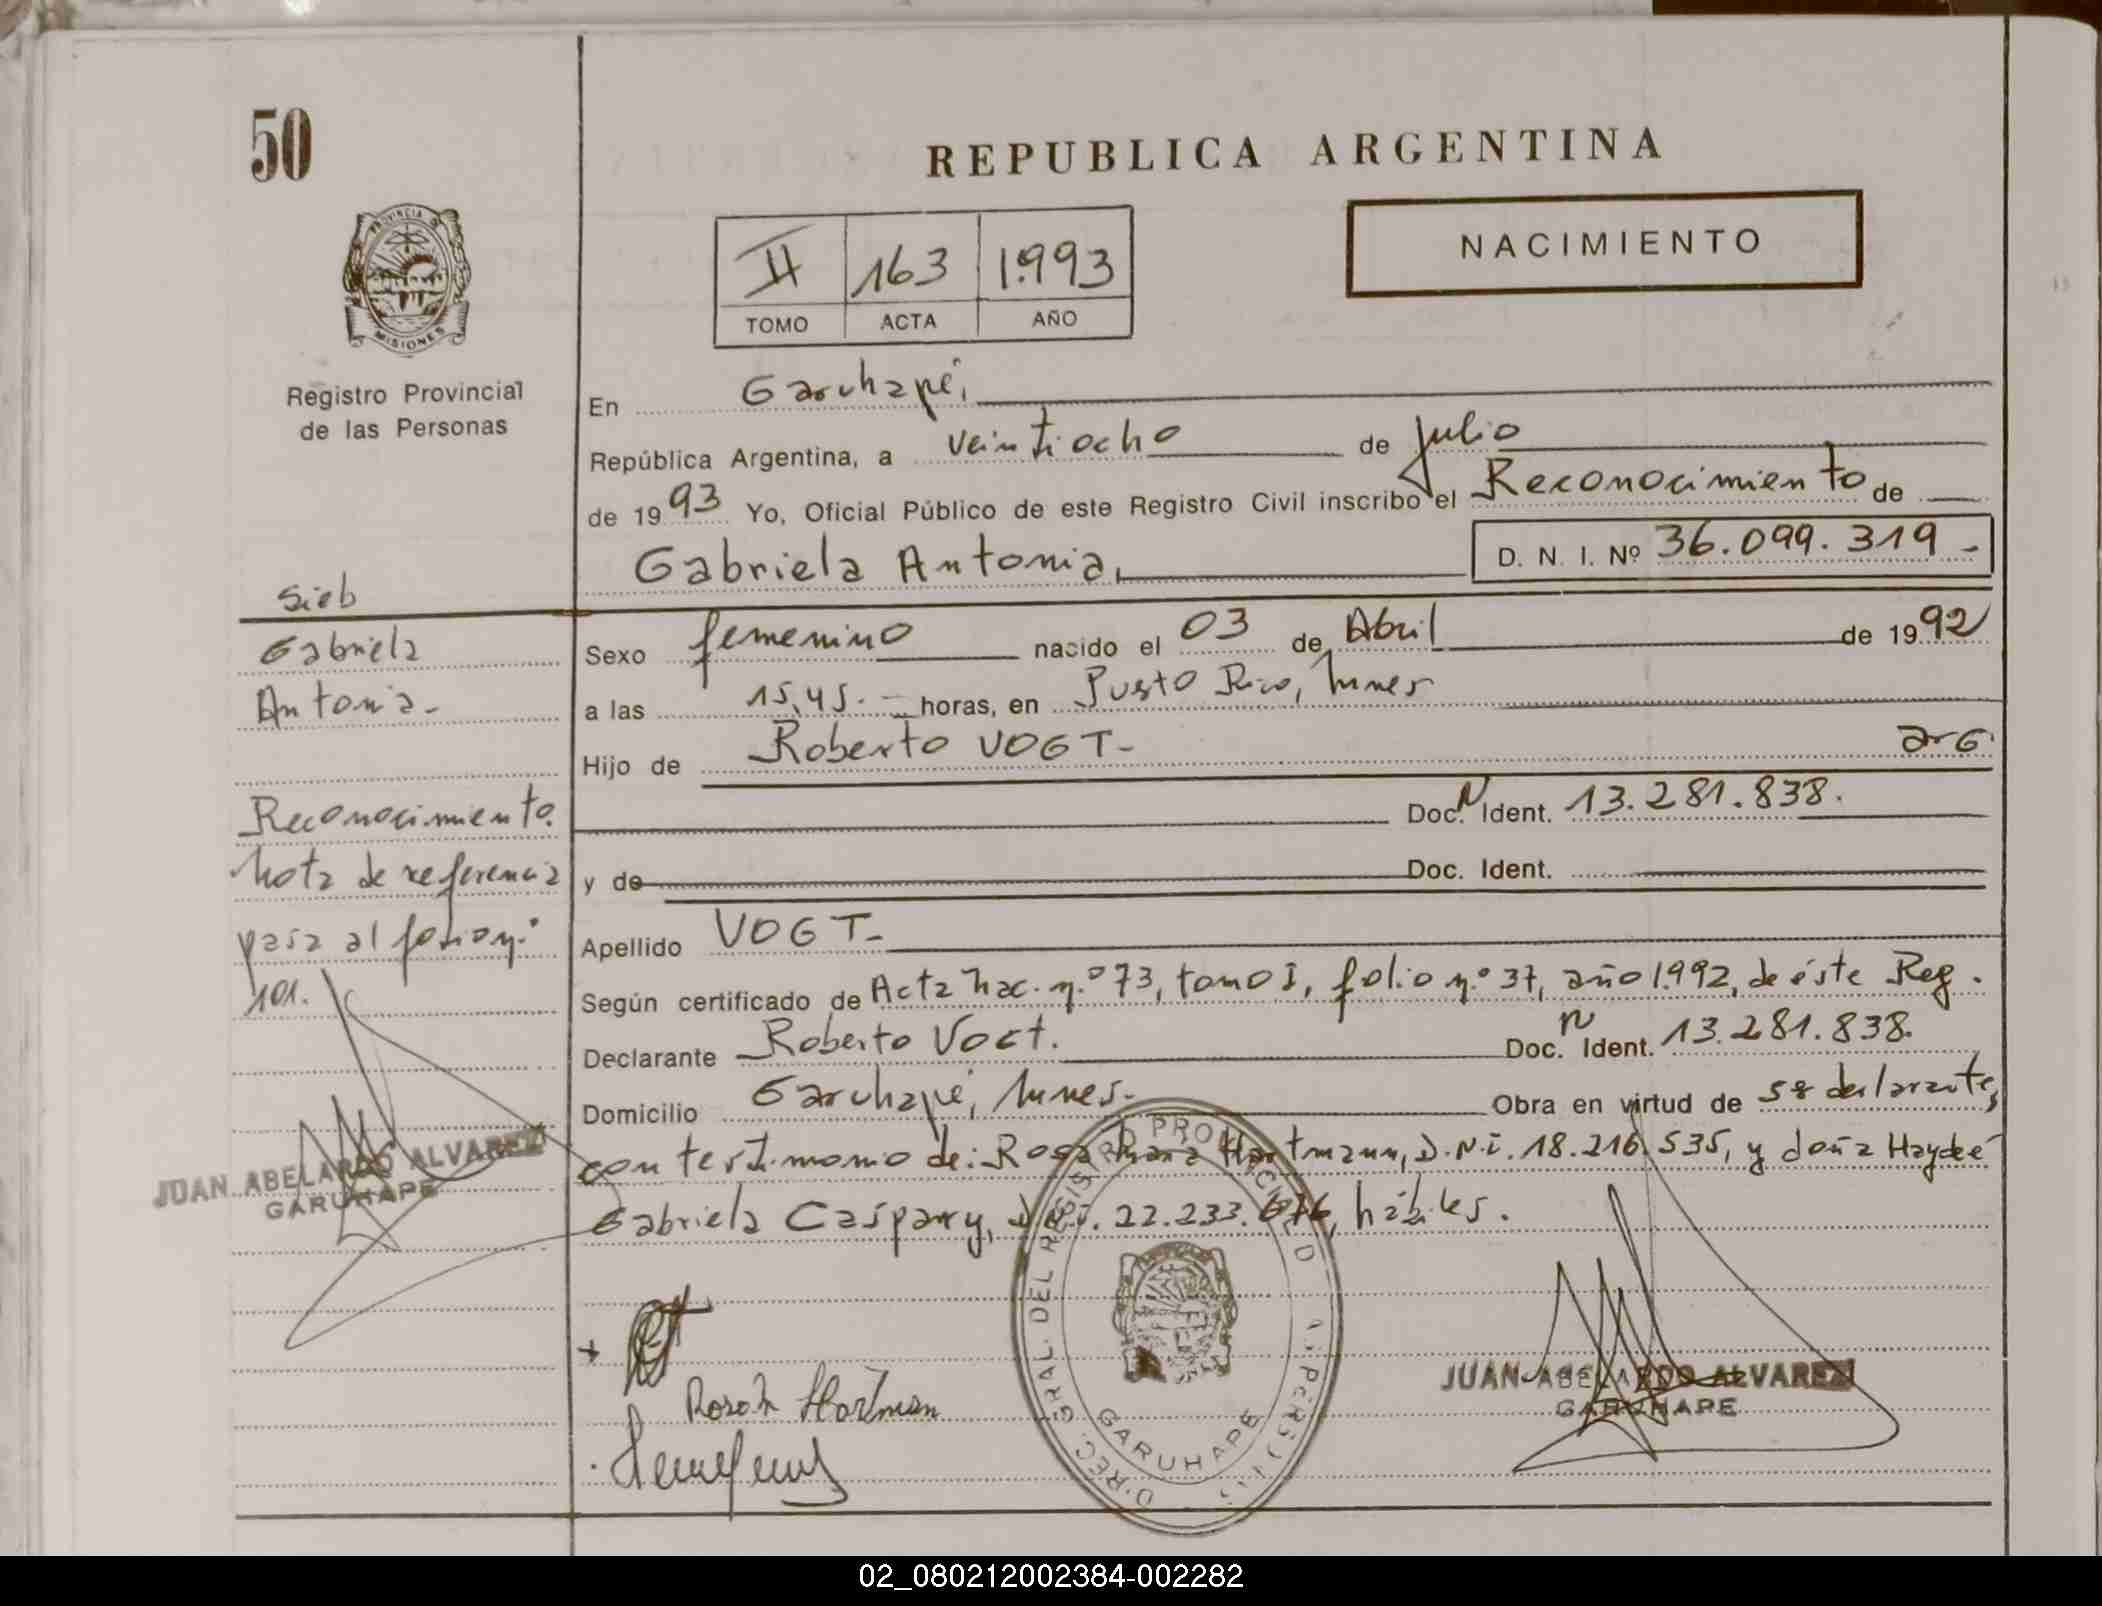 50
REPUBLICA ARGENTINA
NACIMIENTO
PROVINCIA DE
MISIONES
II 163 1.993
TOMO ACTA AÑO
Registro Provincial
de las Personas
En Garuhapé,
República Argentina, a veintiocho de Julio
de 1993 Yo, Oficial Público de este Registro Civil inscribo el Reconocimiento de
Gabriela Antonia, D. N. I. Nº 36.099.319 -
Sieb
Gabriela
Antonia.-
Reconocimiento.
Nota de referencia
pasa al folio n:º
101.
JUAN ABELARDO ALVAREZ
GARUHAPE
Sexo femenino nacido el 03 de Abril de 1992
a las 15,45.- horas, en Puerto Rico, Mnes
Hijo de Roberto VOGT- arG.
Doc. N Ident. 13.281.838.
y de Doc. Ident.
Apellido VOGT-
Según certificado de Acta Nac. n.º 73, tomo I, folio n.º 37, año 1.992, de éste Reg.
Declarante Roberto Vogt. Doc. N Ident. 13.281.838.
Domicilio Garuhapé, Mnes.- Obra en virtud de ser declarante,
con testimonio de: Rosa Hartmann, D.N.I. 18.216.535, y doña Haydeé
Gabriela Caspary, D.N.I. 22.233.676, hábiles.
Hartman
DIREC. GRAL. DEL REGISTRO PROVINCIAL D
GARUHAPE
JUAN ABELARDO ALVAREZ
GARUHAPE
02_080212002384-002282